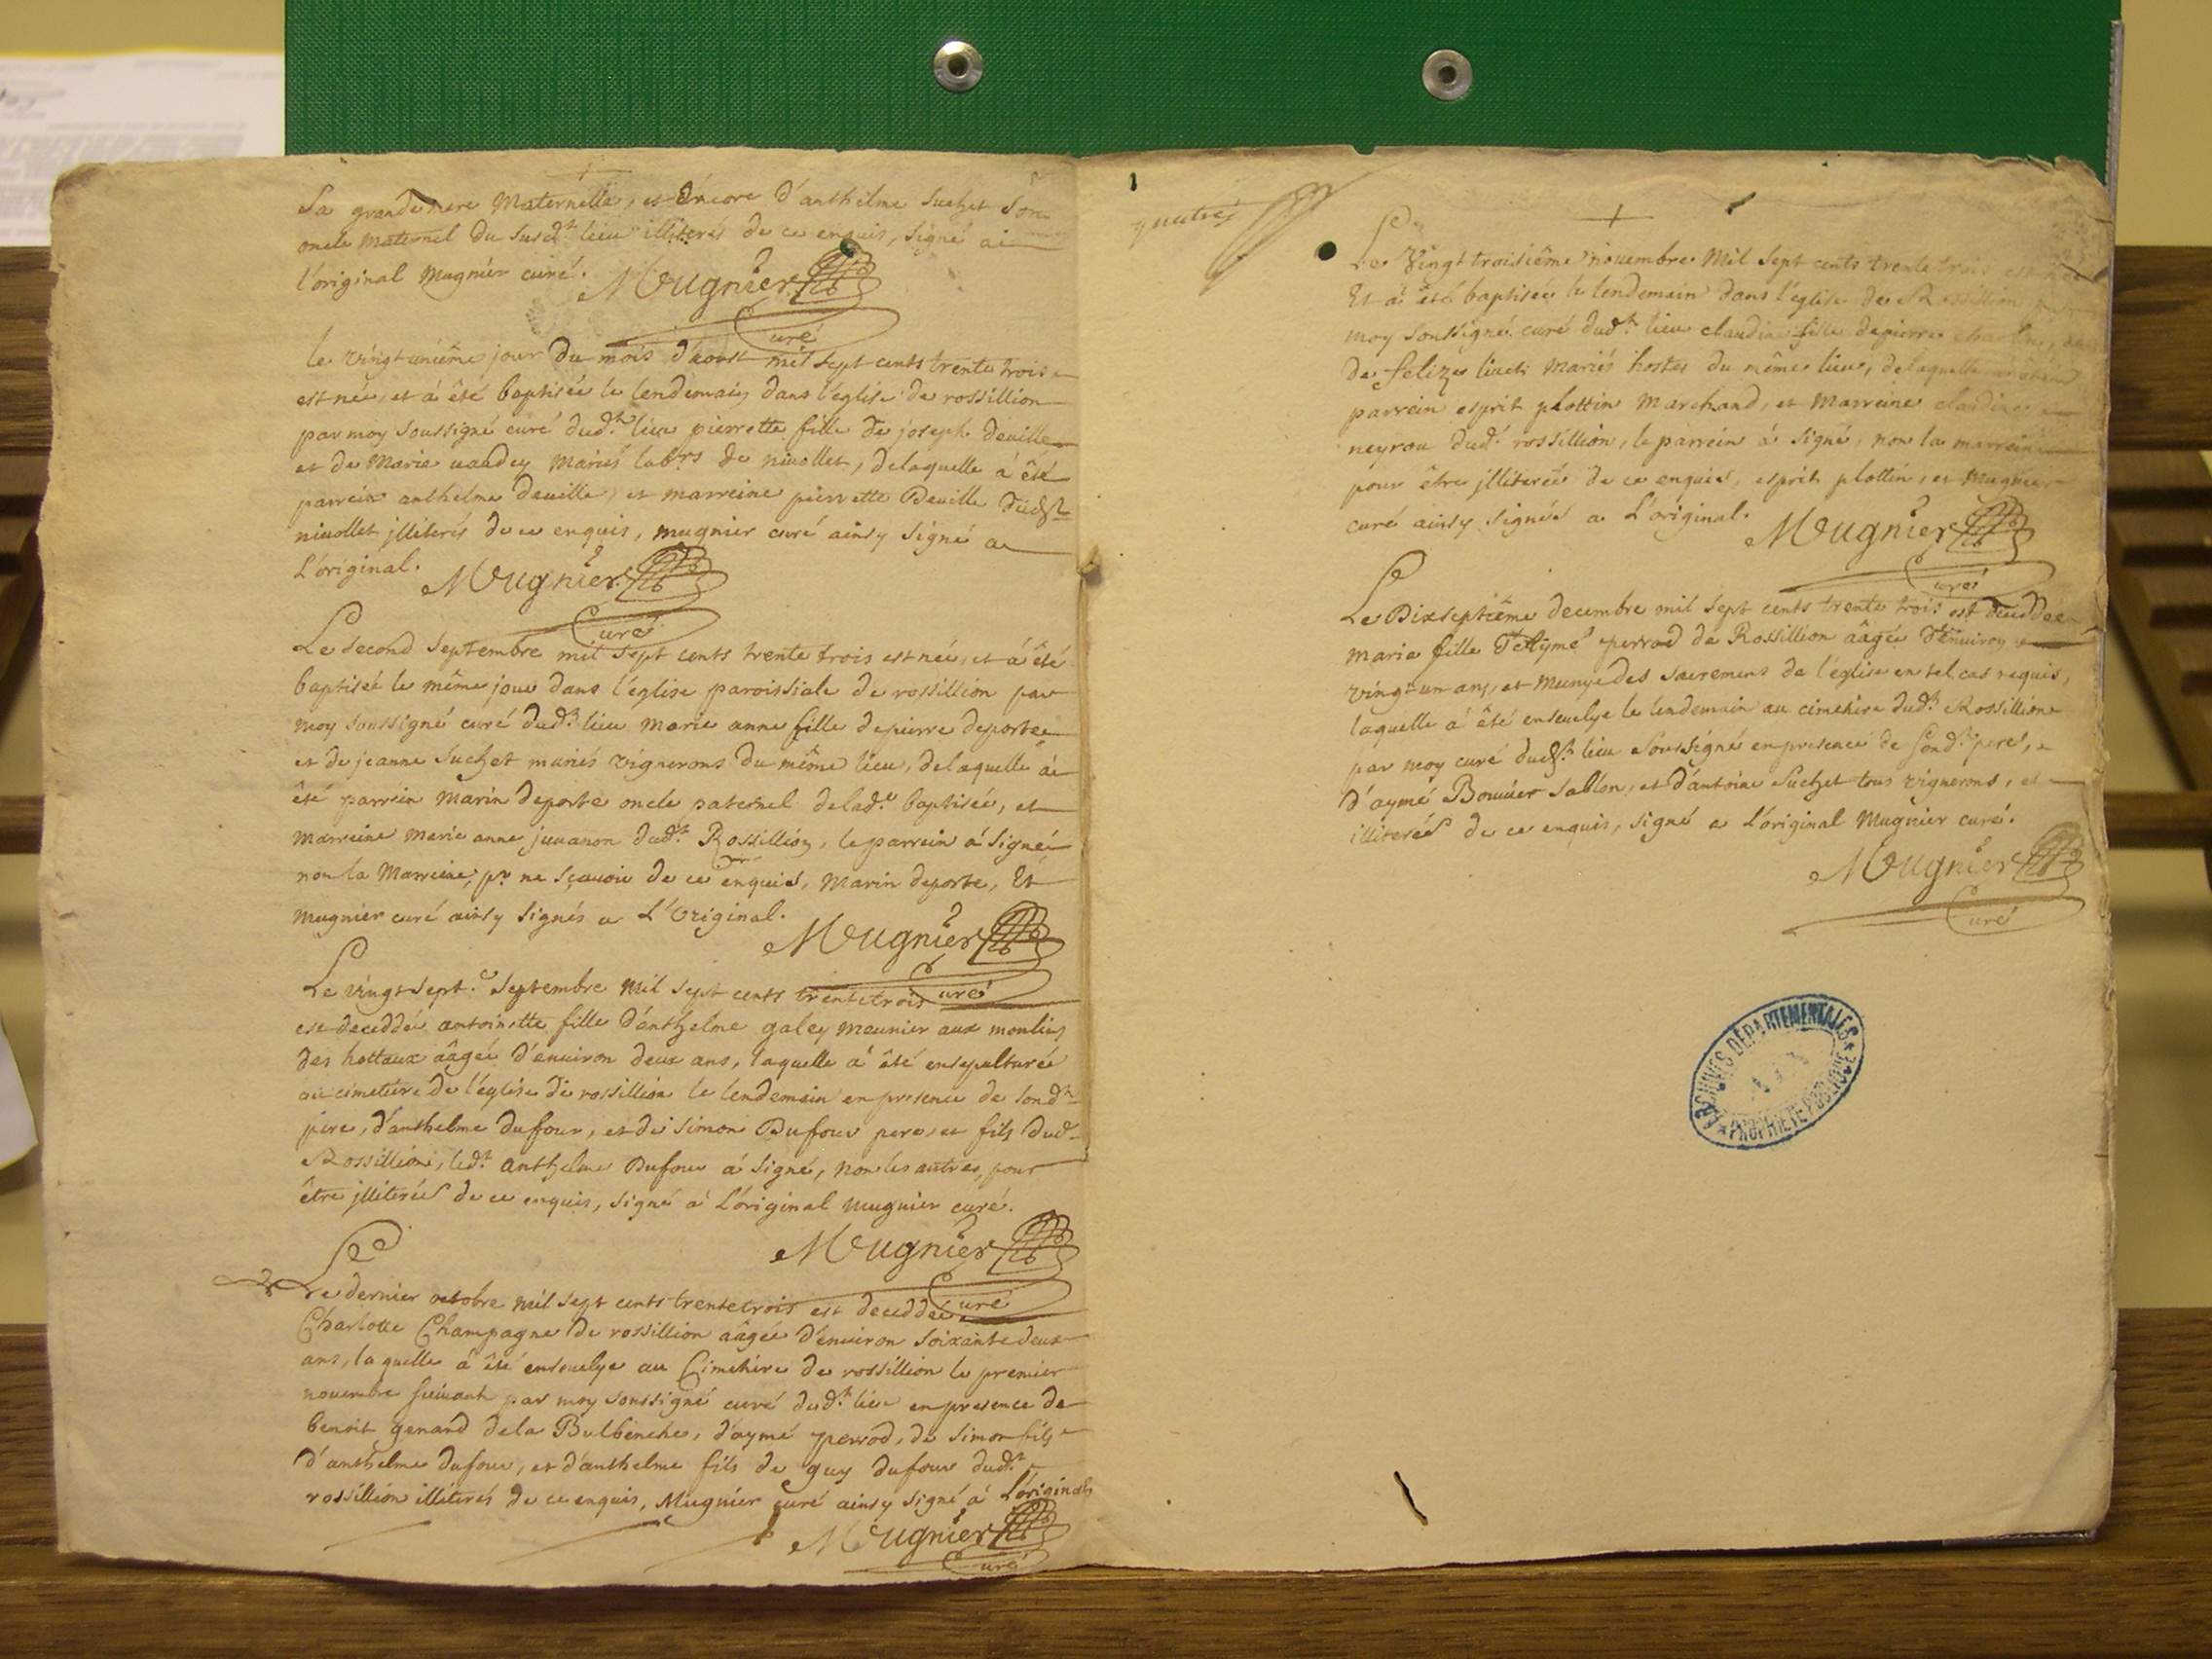 Sa grande mere Maternelle, et Encore d'anthelme Suchet son
oncle maternel du susd.t lieu illiterés de ce enquis, signé a
l'original Mugnier curé. Mugnier
Curé
le vingtuniême jour du mois d'aoust mil sept cents trente trois
est née, et á êté baptisée le lendemain dans l'église de rossillion
par moy soussigné curé dud.t lieu pierrette fille de joseph deville
et de Marie vaudey mariés lab.rs de nivollet, delaquelle á êté
parrein anthelme deville, et marreine pierrette Deville dud.t
nivollet jlliterés de ce enquis, mugnier curé ainsy signé a
L'original. Mugnier
Curé
Le second septembre mil sept cents trente trois est née, et á êté
baptisée le même jour dans l'église paroissiale de rossillion par
moy soussigné curé dud.t lieu marie anne fille de pierre deporte
et de jeanne Suchet mariés vignerons du même lieu, delaquelle á
êté parrein marin deporte oncle paternel delad.e baptisée, et
marreine marie anne juvanon dud.t Rossillion, le parrein á signé
non la Marreine, p.r ne sçavoir de ce enquis, marin deporte, Et
mugnier curé ainsy signés a L'Original. Mugnier
Curé
Le vingt sept.e septembre mil sept cents trente trois
est deceddée antoinette fille d'anthelme galey meunier aux moulins
des hottaux âagée d'environ deux ans, laquelle á êté ensepulturée
au cimetiere de l'église de rossillion le lendemain en presence de sond.t
pere, d'anthelme dufour, et de simon Dufour pere, et fils dud.
Rossillion, led.t anthelme Dufour á signé, non les autres, pour
être jlliterés de ce enquis, signé á L'original mugnier curé.
Mugnier
Curé
Le dernier octobre mil sept cents trente trois est deceddée
Charlotte Champagne de rossillion âagée d'environ soixante deux
ans, laquelle á êté ensevelye au Cimetiere de rossillion le premier
novembre suivant par moy soussigné curé dud.t lieu en presence de
benoit genand dela Bulbenche, d'aymé perrod, de simon fils
d'anthelme dufour, et d'anthelme fils de guy dufour dud.t
rossillion illiterés de ce enquis, Mugnier curé ainsy signé á L'original
Mugnier
Curé
Le Vingt troisiême novembre Mil sept cents trente trois est née
Et á êté baptisée le lendemain dans l'église de Rossillion par
moy soussigné curé dud.t lieu claudine fille de pierre
de felize mariés hostes du même lieu, delaquelle á êté
parrein esprit plottin Marchand, et Marreine claudine
neyrou dud.t rossillion, le parrein á signé, non la marreine
pour être jlliterée de ce enquise, esprit plottin, et Mugnier
curé ainsy signés a L'original. Mugnier
Curé
Le Dixseptiême decembre mil sept cents trente trois est deceddée
marie fille d'Aymé perrod de Rossillion âagée d'Environ
vingt un ans, et munye des sacremens de l'église en tel cas requis,
laquelle á êté ensevelye le lendemain au cimetiere dud.t Rossillion
par moy curé dud.t lieu soussigné en presence de sond.t pere,
d'aymé Bouvier sablon, et d'antoine Suchet tous vignerons, et
illiterés de ce enquis, signé a L'original Mugnier curé.
Mugnier
Curé
ARCHIVES DÉPARTEMENTALES
AIN
PROPRIÉTÉ PUBLIQUE